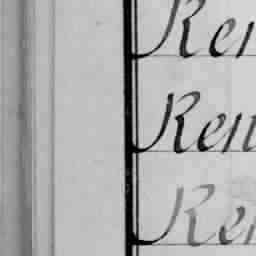 Ren
Ren
Ren